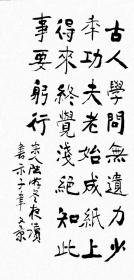 古人學問無遺力少
壯功夫老始成紙上
得來終覺淺絕知此
事要躬行
陸游冬夜讀
書示子聿